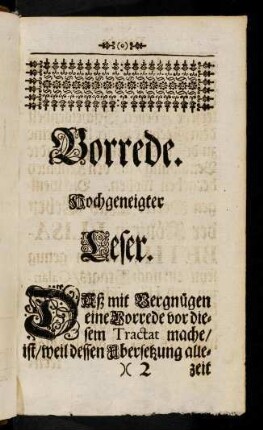 (o)
Vorrede.
Hochgeneigter
Leser.
DAß mit Vergnügen
eine Vorrede vor die-
sem Tractat mache/
ist/weil dessen Übersetzung alle-
)( 2 zeit